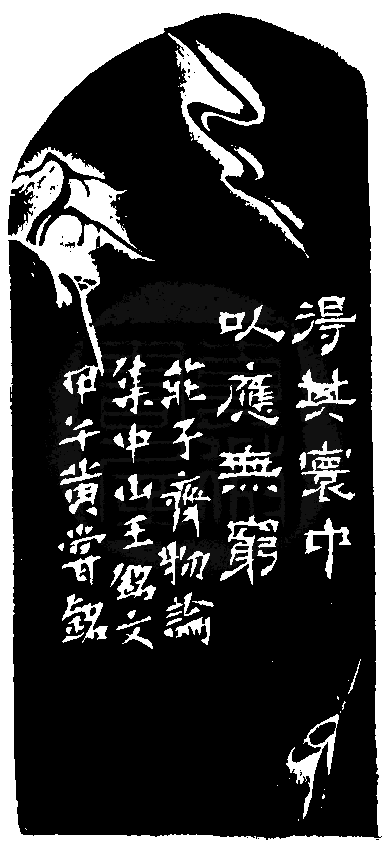 得其寰中
以應無窮
莊子齊物論
集中山王銘文
甲午黄嘗銘